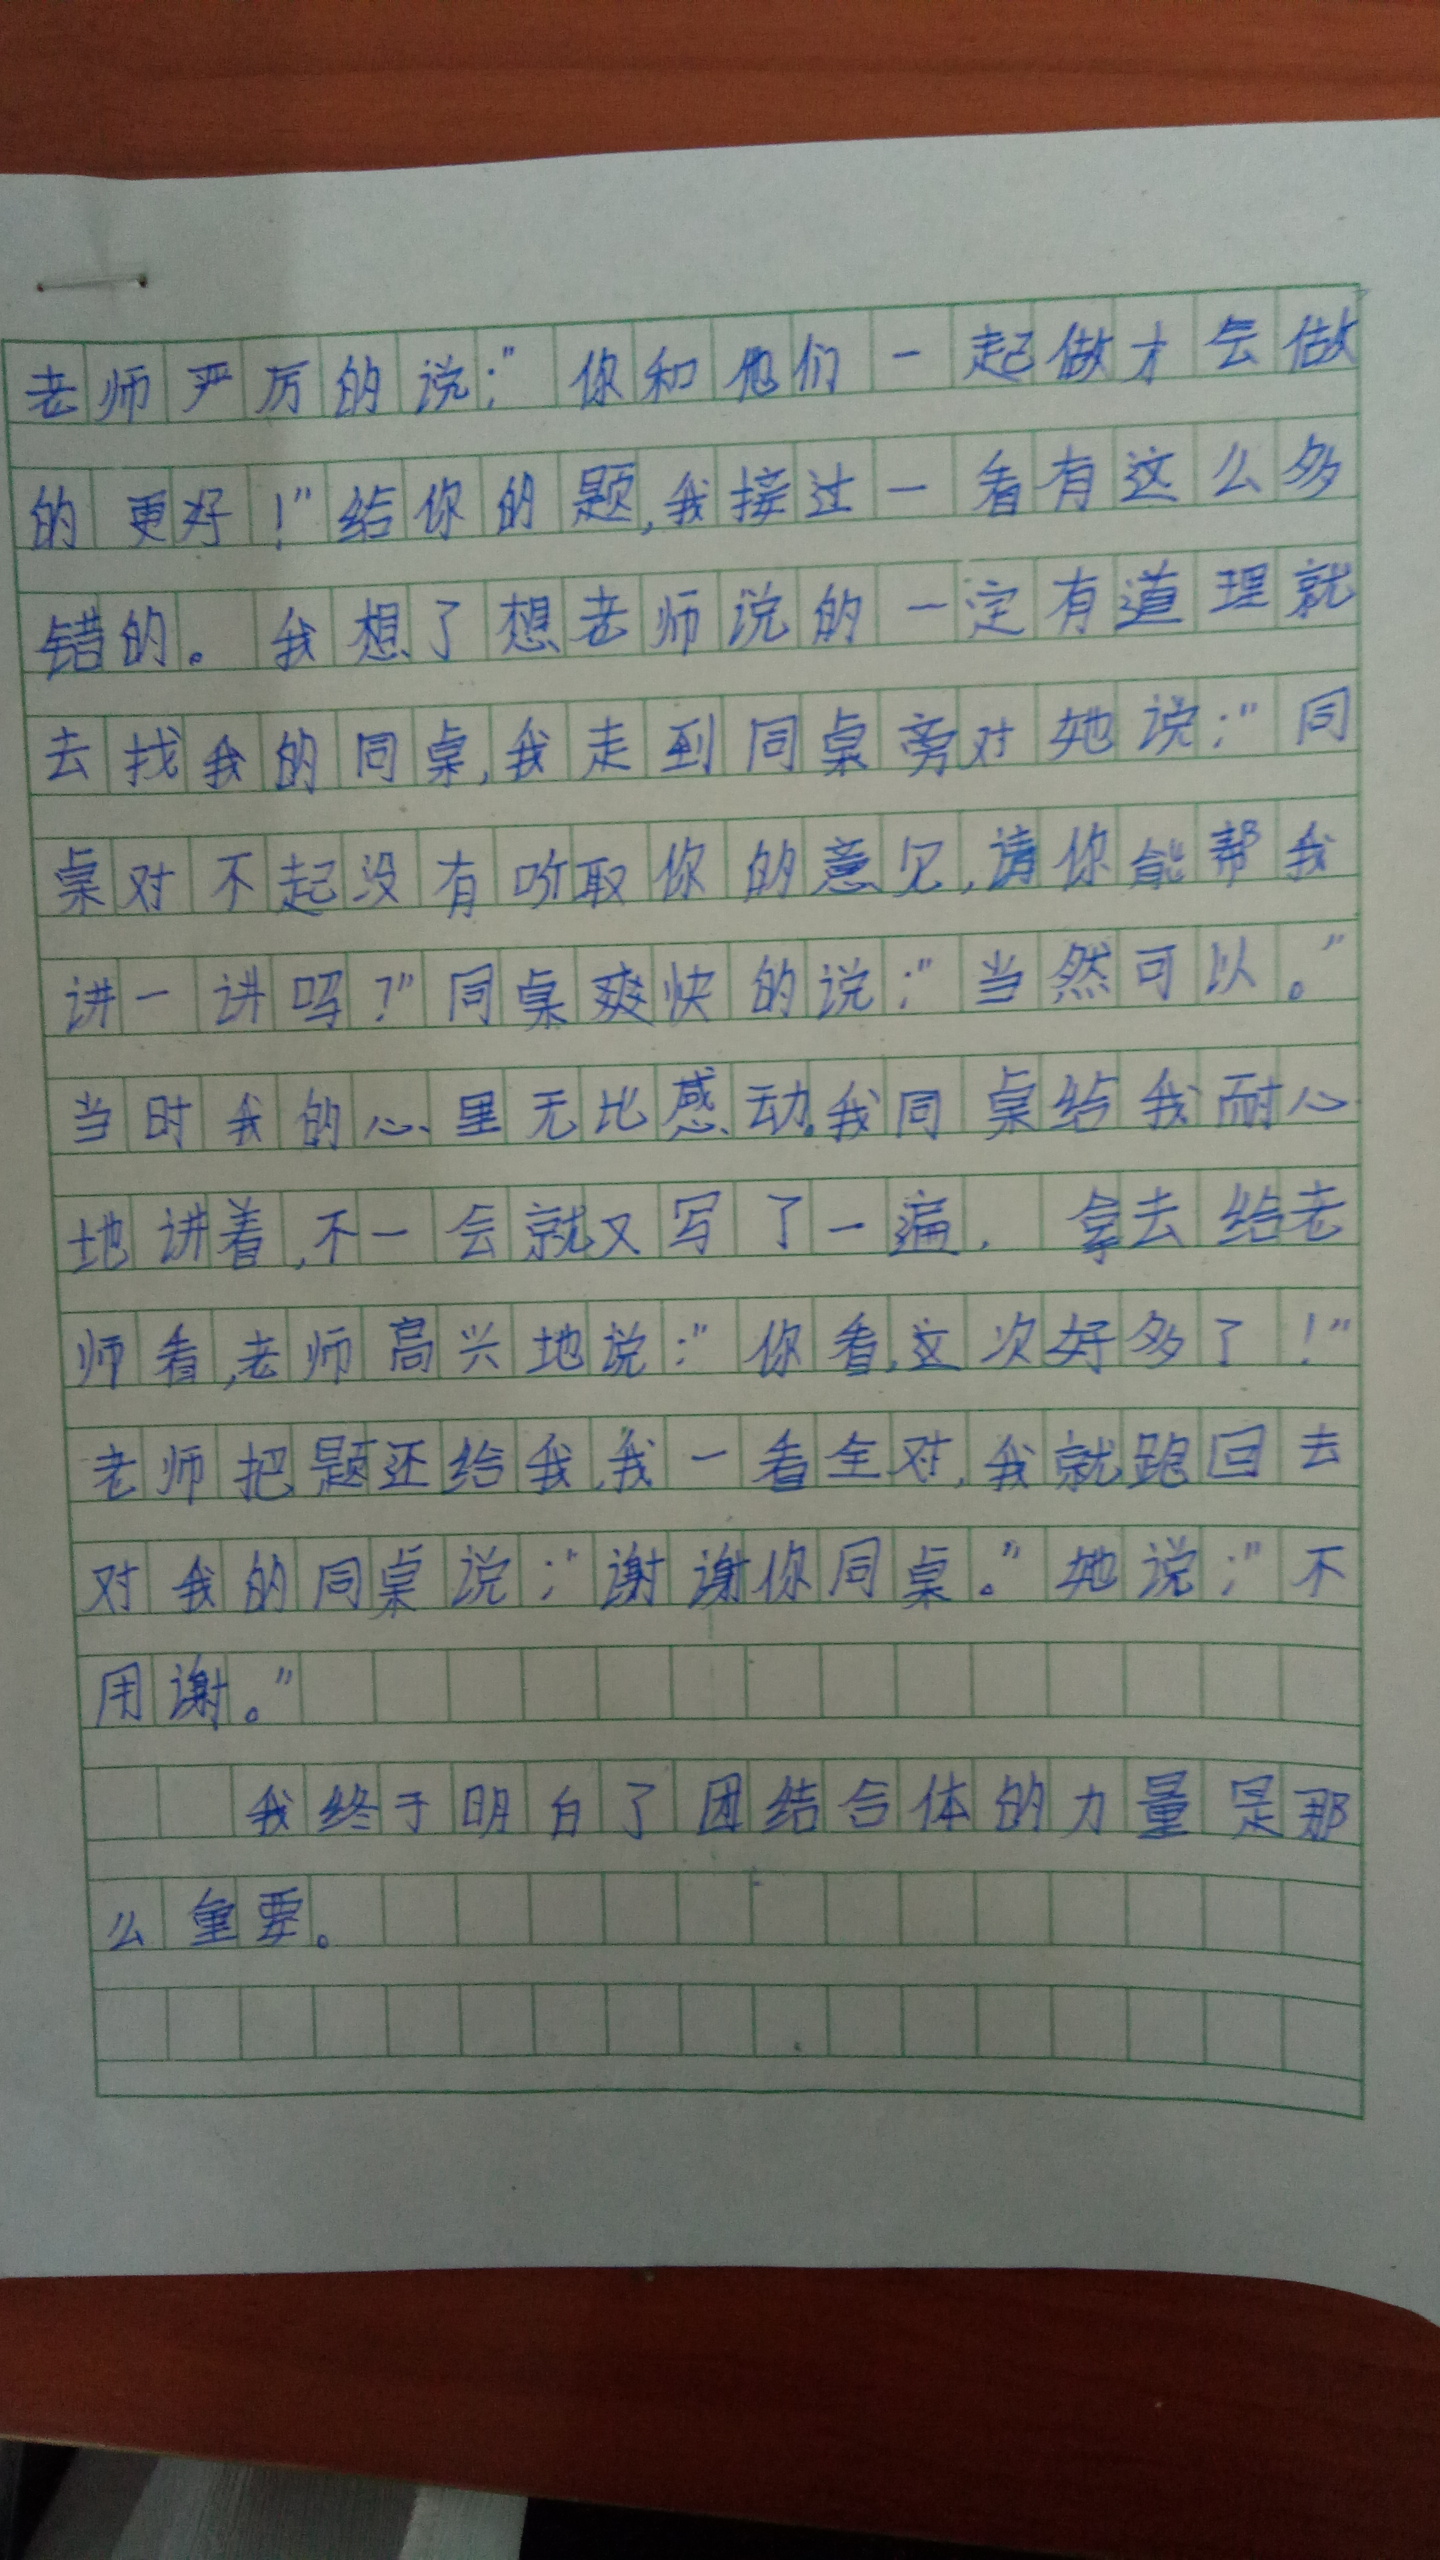 老师严厉的说:"你和他们一起做才会做
的更好!"给你的题,我接过一看有这么多
错的。我想了想老师说的一定有道理就
去找我的同桌,我走到同桌旁对她说:"同
桌对不起没有听取你的意见,请你能帮我
讲一讲吗?"同桌爽快的说:"当然可以。"
当时我的心里无比感动。我同桌给我耐心
地讲着,不一会就又写了一遍,拿去给老
师看,老师高兴地说:"你看,这次好多了!"
老师把题还给我,我一看全对,我就跑回去
对我的同桌说:"谢谢你同桌。"她说:"不
用谢。"
我终于明白了团结合体的力量是那
么重要。